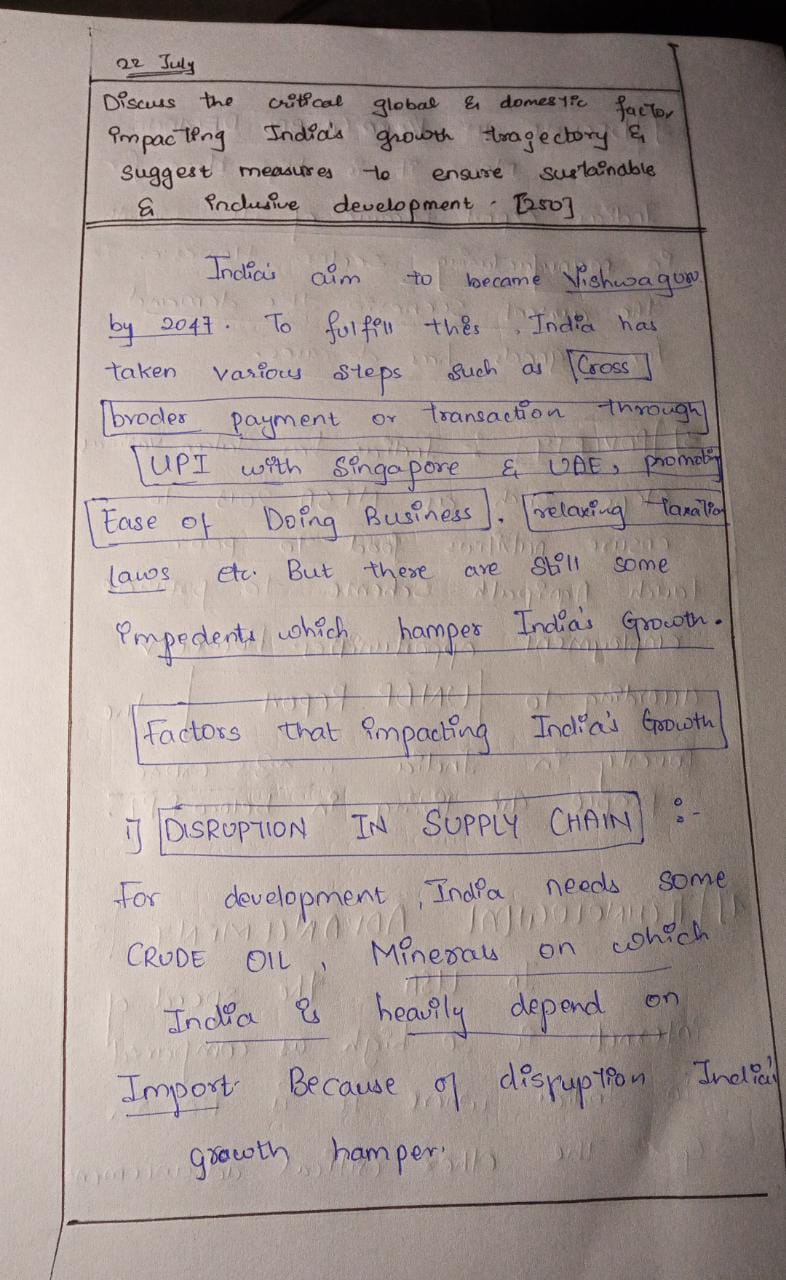 22 July
Discuss the critical global & domestic factor
impacting India's growth tragectory &
suggest measures to ensure sustainable
& inclusive development. [250]
India's aim to became Vishwaguru
by 2047. To fulfill this, India has
taken various steps such as Cross
broder payment or transaction through
UPI with Singapore & UAE, promoting
Ease of Doing Business, relaxing taxation
laws etc. But there are still some
impedents which hamper India's Growth.
Factors that impacting India's Growth
1] DISRUPTION IN SUPPLY CHAIN :-
For development, India needs some
CRUDE OIL, Minerals on which
India is heavily depend on
Import Because of disruption India's
growth hamper.